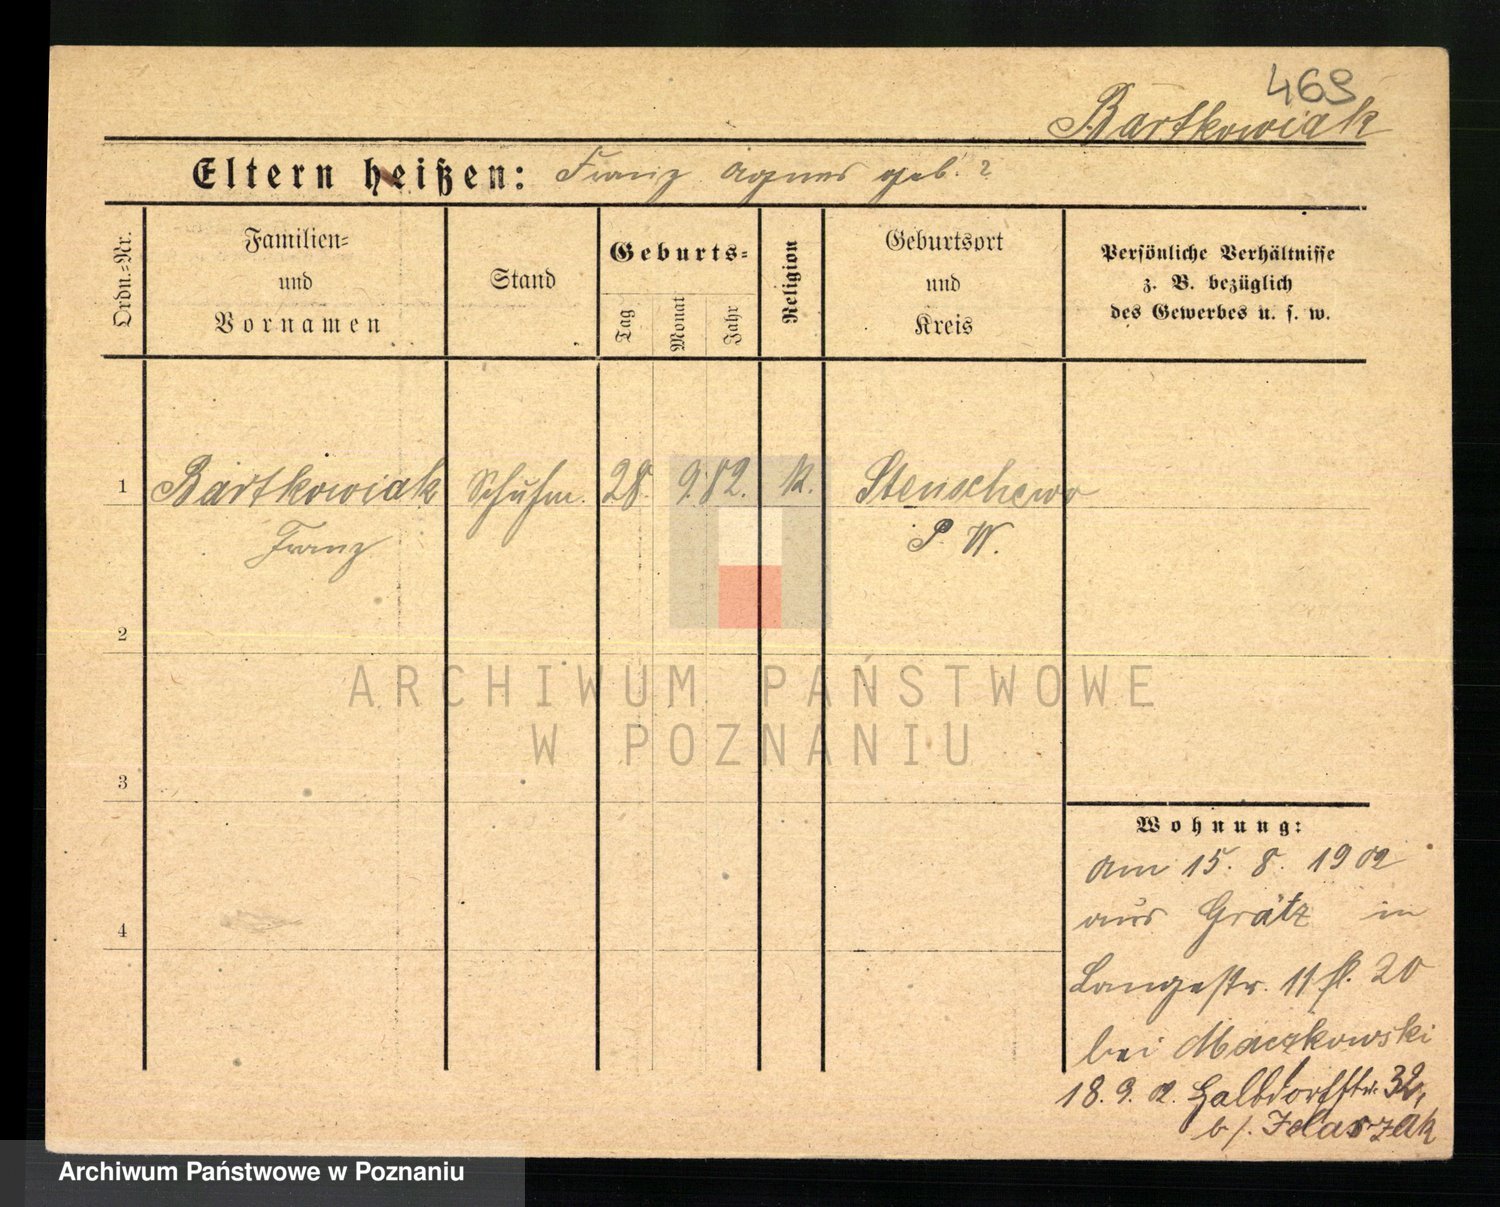 469
Bartkowiak
Eltern heißen: Franz Agnes geb. ?
Ordn.-Nr.
Familien-
und
Vornamen
Stand
Geburts-
Tag
Monat
Jahr
Religion
Geburtsort
und
Kreis
Persönliche Verhältnisse
z. B. bezüglich
des Gewerbes u. s. w.
1 Bartkowiak Schuhm. 28. 9. 82. K. Stenschewo
Franz P. W.
2
ARCHIWUM PAŃSTWOWE
W POZNANIU
3
Wohnung:
am 15. 8. 1902
aus Grätz in
4
Langestr. 11 20
bei Maczkowski
18. 9. 02. Halbdorfstr. 32,
b/.
Archiwum Państwowe w Poznaniu